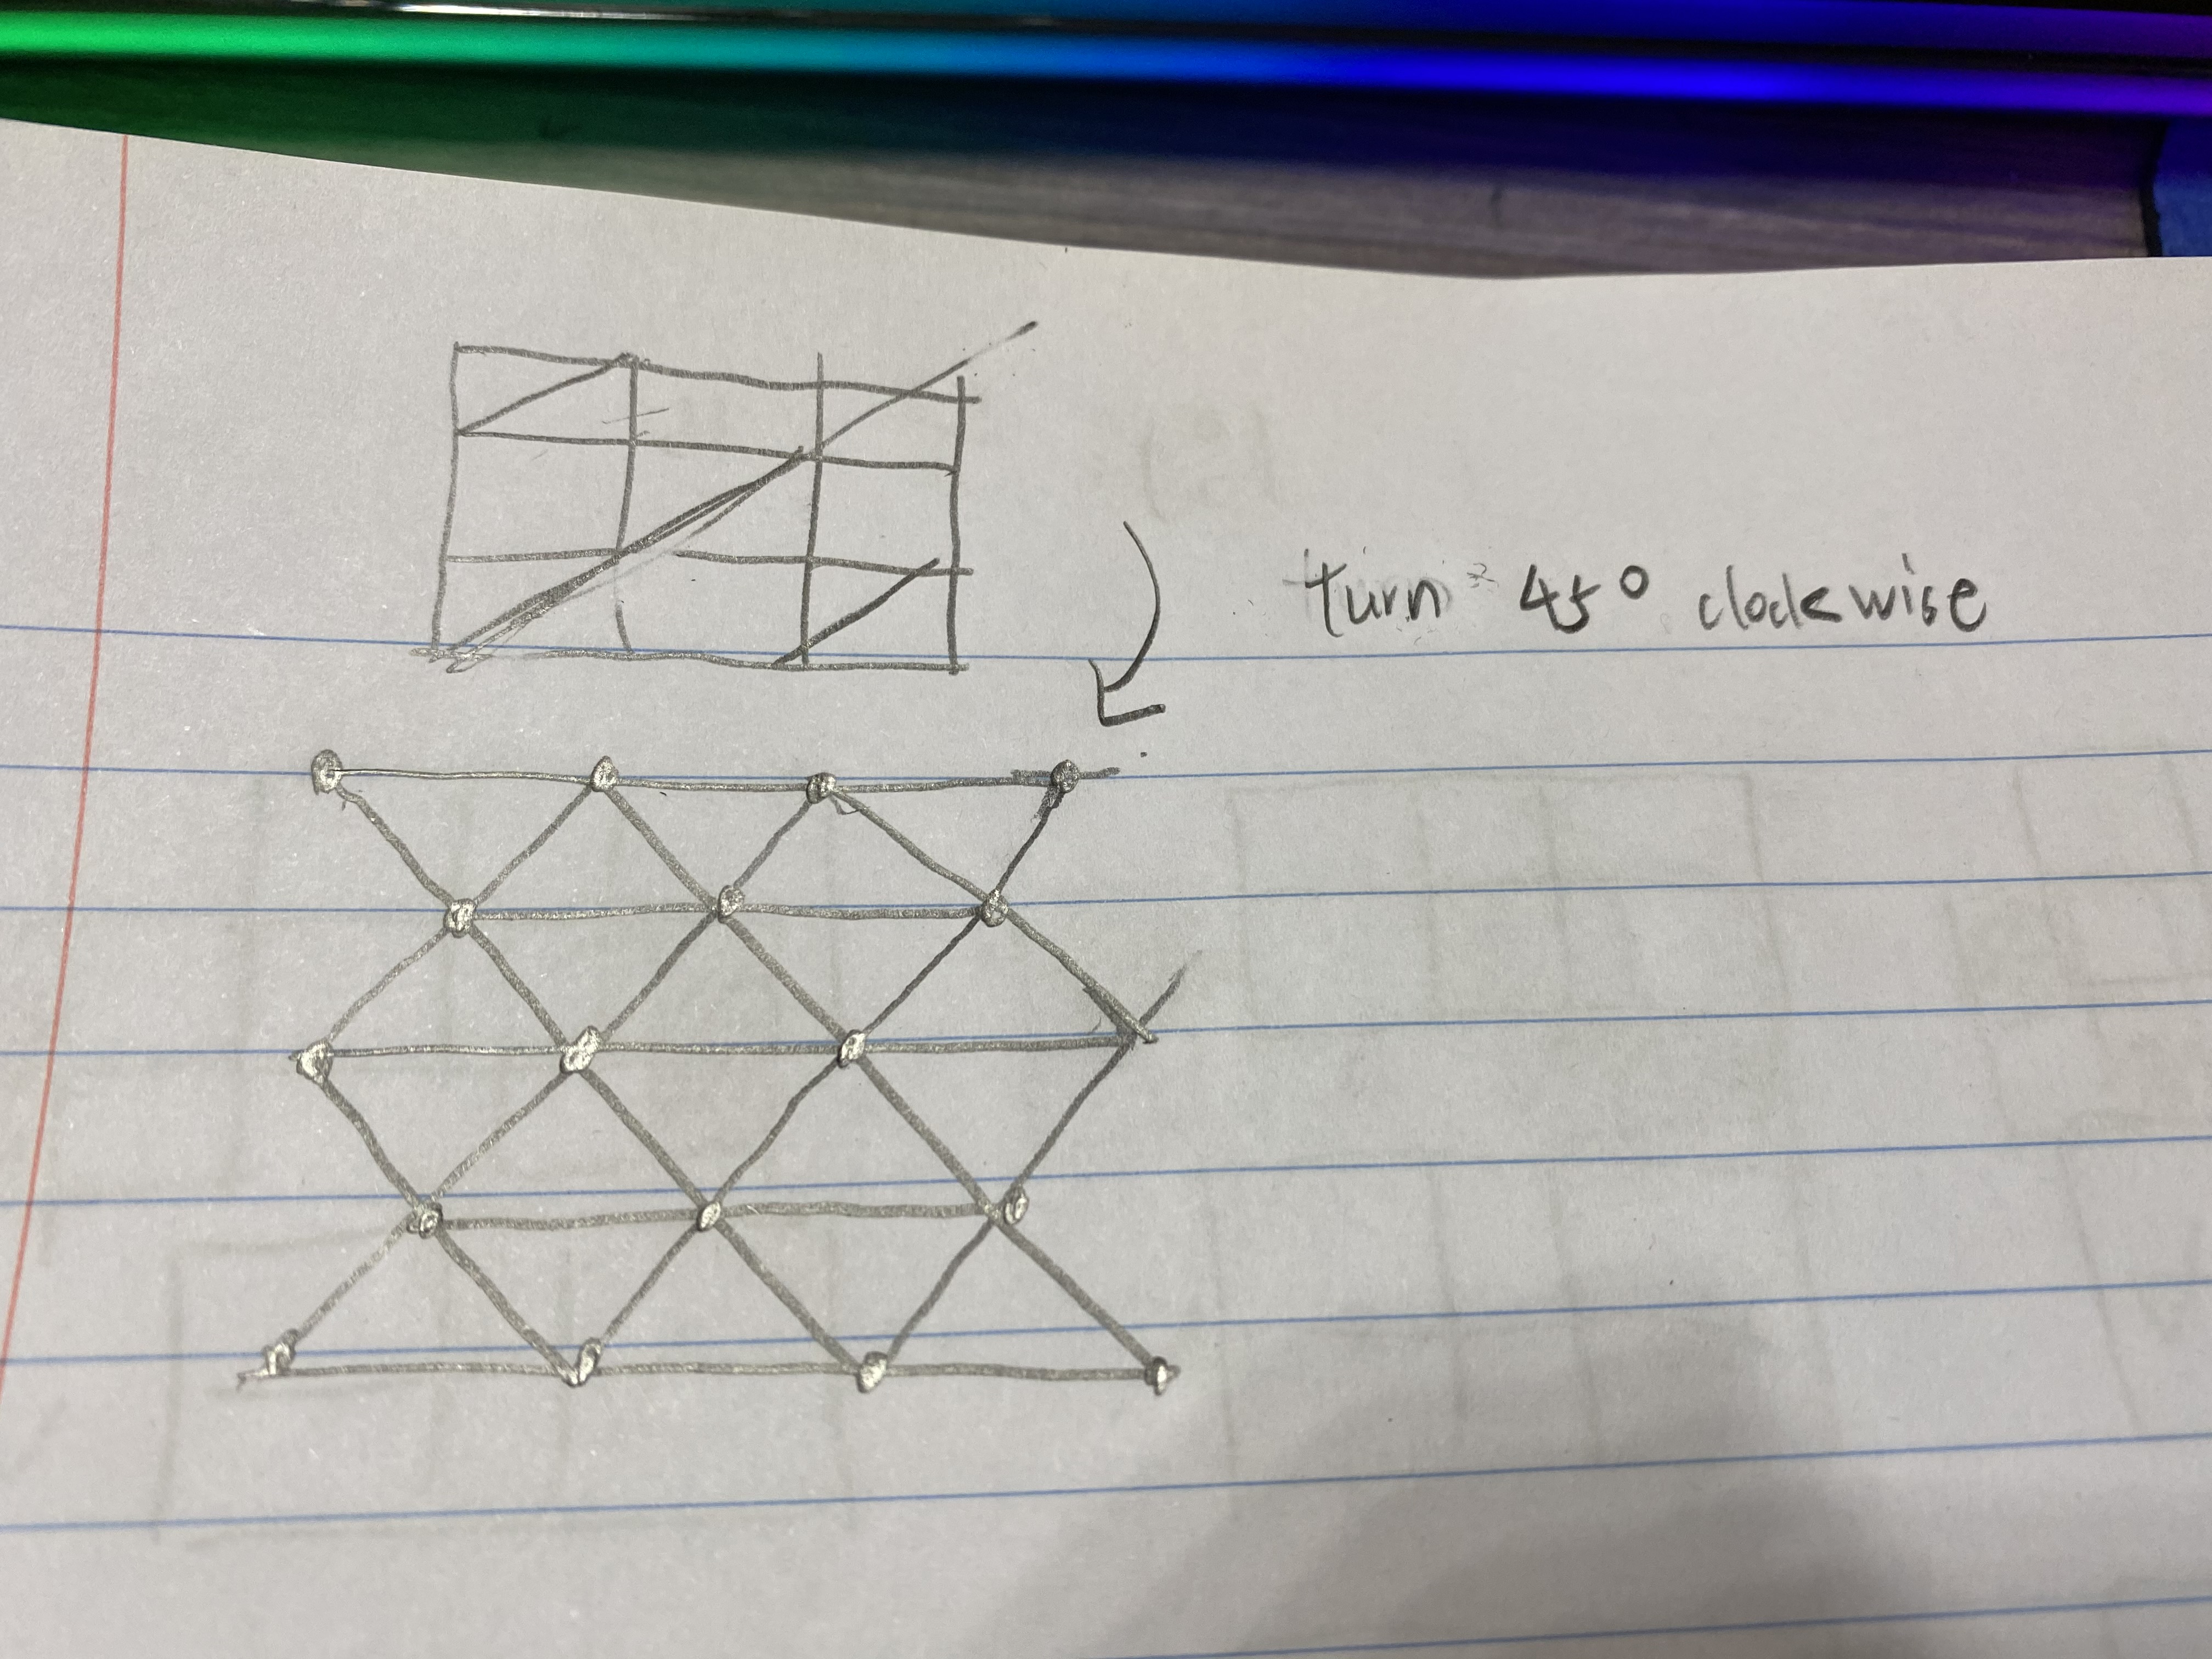 turn 45° clockwise